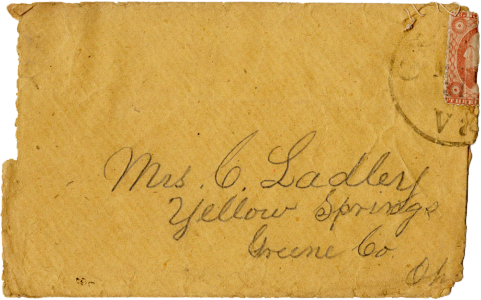 THREE
VA
Mrs. C. Ladley
Yellow Springs
Greene Co.
Oh